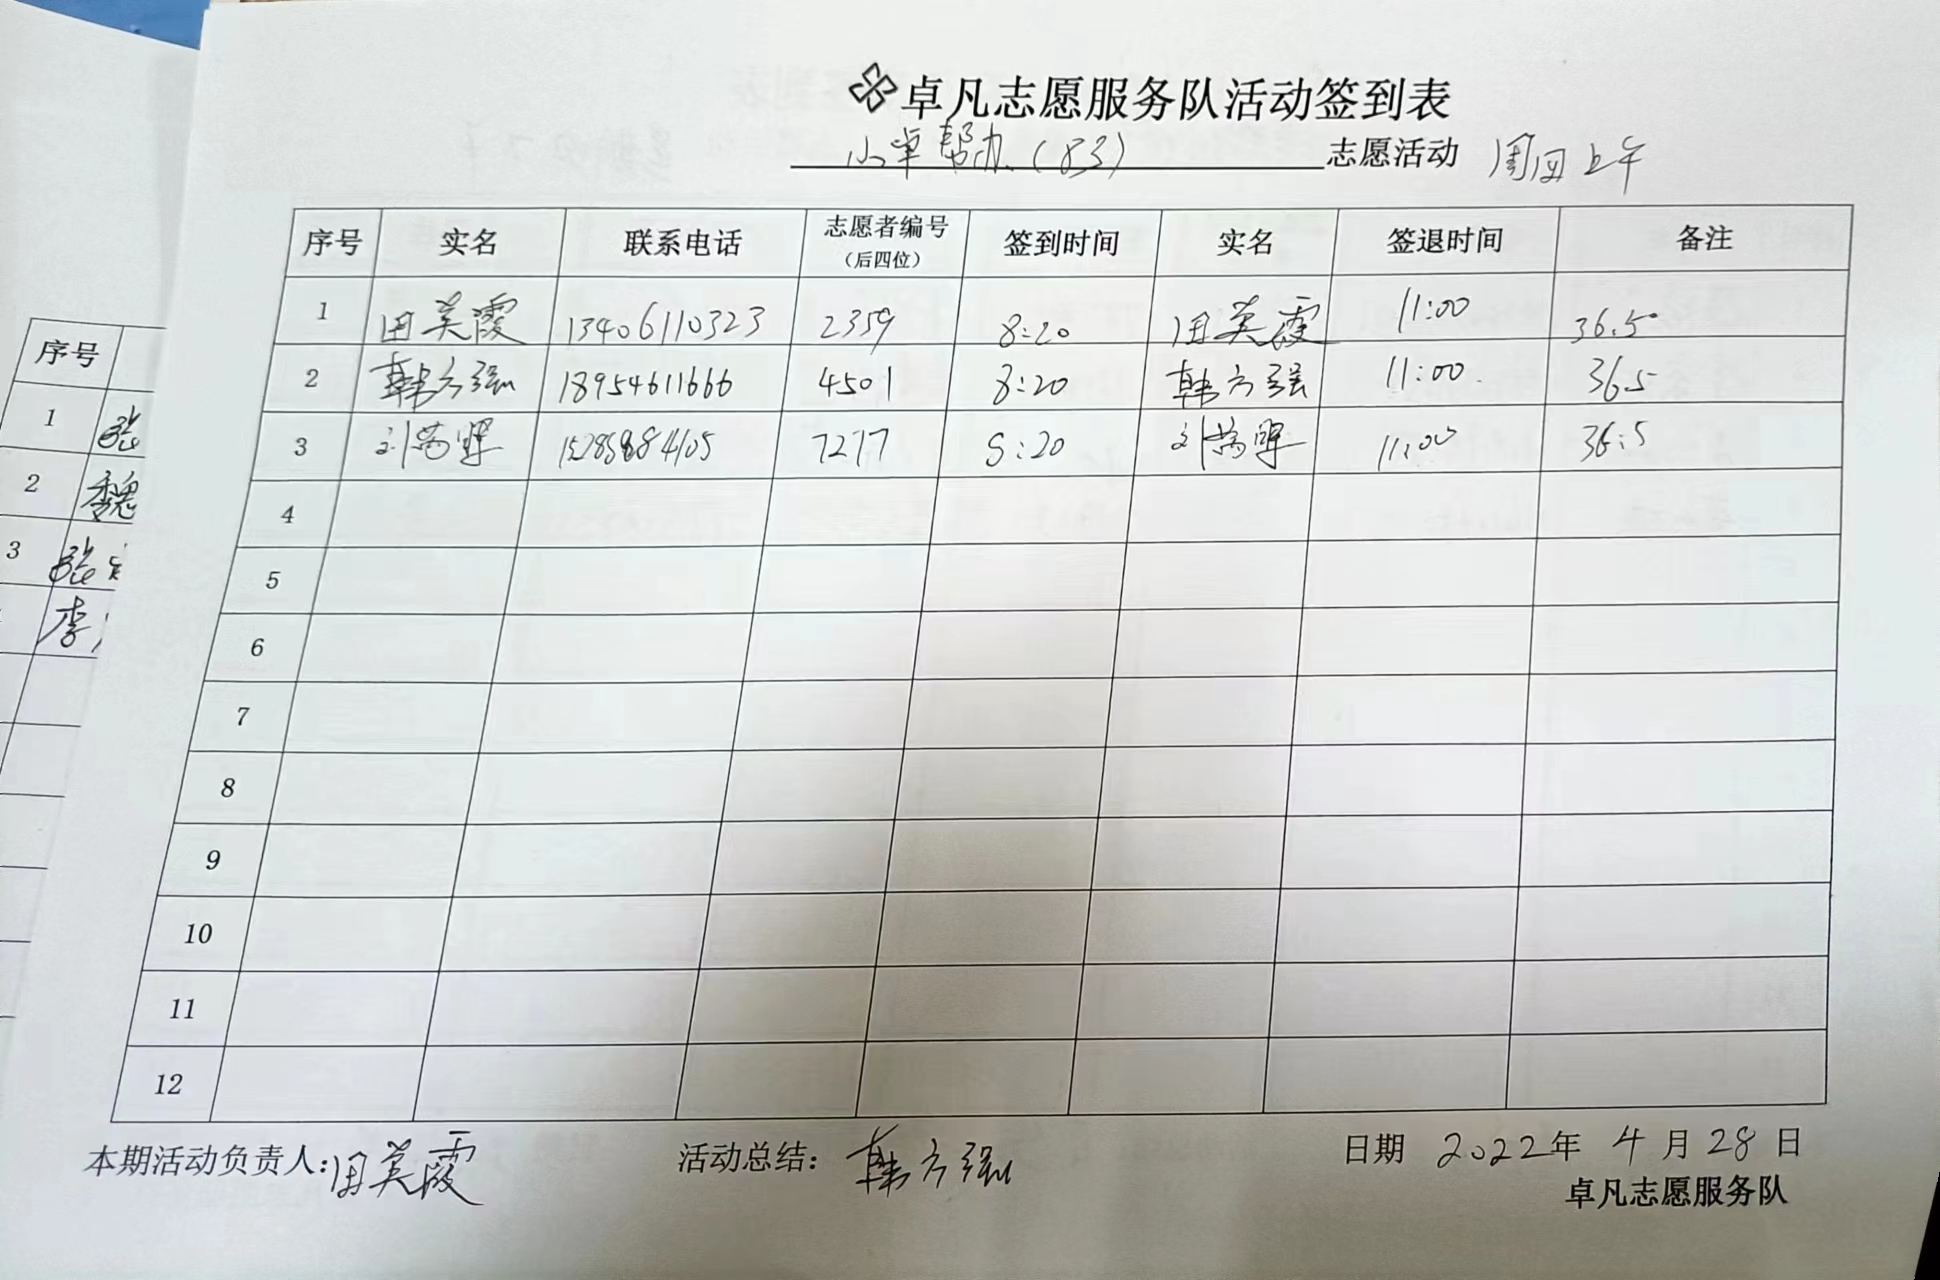 卓凡志愿服务队活动签到表
小卓帮办(83) 志愿活动 周四上午
序号 实名 联系电话 志愿者编号(后四位) 签到时间 实名 签退时间 备注
1 田美霞 13406110323 2359 8:20 田美霞 11:00 36.5°
2 韩方强 18954611666 4501 8:20 韩方强 11:00 36.5
3 7277 8:20 11:00 36.5
4
5
6
7
8
9
10
11
12
本期活动负责人:田美霞 活动总结:韩方强 日期 2022年 4月28日
卓凡志愿服务队
序号
1 张
2 魏
3 张
李